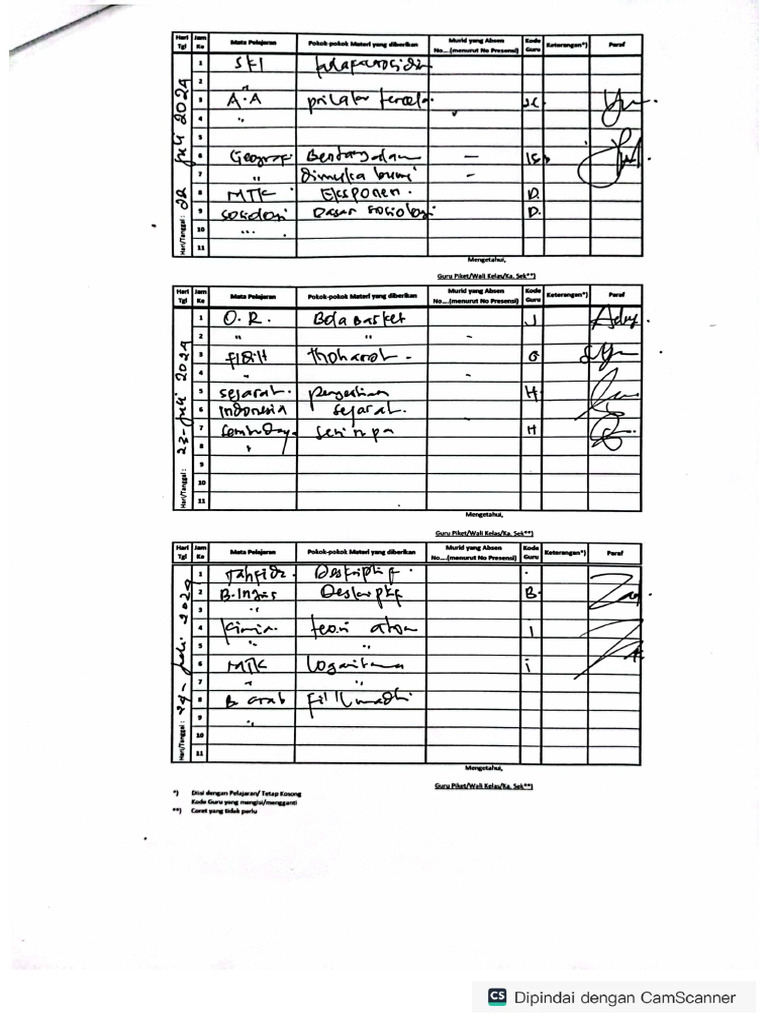 Hari Tgl | Jam Ke | Mata Pelajaran | Pokok-pokok Materi yang diberikan | Murid yang Absen No....(menurut No Presensi) | Kode Guru | Keterangan*) | Paraf
Hari/Tanggal : 22 Juli 2024
1 SKI
2
3 A.A prilaku tercela
4 "
5
6 Geografi Bentangalam —
7 " Dimuka bumi -
8 MTK Eksponen. D.
9 sosiologi Dasar sosiologi D.
10 "
11
Mengetahui,
Guru Piket/Wali Kelas/Ka. Sek**)
Hari Tgl | Jam Ke | Mata Pelajaran | Pokok-pokok Materi yang diberikan | Murid yang Absen No....(menurut No Presensi) | Kode Guru | Keterangan*) | Paraf
Hari/Tanggal : 23-Juli 2024
1 O.R. Bola basket J
2 " " -
3 fiqih thoharoh - G
4 " -
5 sejarah. pengertian H
6 Indonesia sejarah.
7 Seni rupa H
8 "
9
10
11
Mengetahui,
Guru Piket/Wali Kelas/Ka. Sek**)
Hari Tgl | Jam Ke | Mata Pelajaran | Pokok-pokok Materi yang diberikan | Murid yang Absen No....(menurut No Presensi) | Kode Guru | Keterangan*) | Paraf
Hari/Tanggal : 24- Juli 2024
1 Tahfidz.
2 B.Inggris B.
3 "
4 Kimia teori atom 1
5 " "
6 MTK logaritma i
7 " "
8 B arab Fi'il madhi
9 "
10
11
Mengetahui,
Guru Piket/Wali Kelas/Ka. Sek**)
*) Diisi dengan Pelajaran/ Tetap Kosong
Kode Guru yang mengisi/mengganti
**) Coret yang tidak perlu
CS Dipindai dengan CamScanner